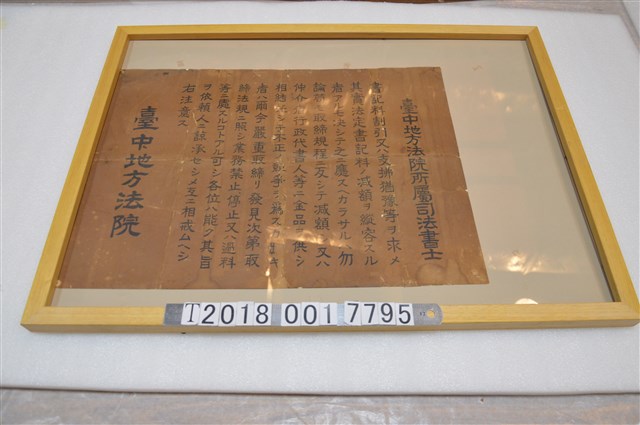 臺中地方法院所屬司法書士
書記料割引又ハ支拂猶豫等ヲ求メ
其他法定書記料ノ減額ヲ慫容スル
者アルモ決シテ之ニ應スヘカラサルハ勿
論若シ取締規程ニ反シテ減額シ又ハ
仲介者行政代書人等ニ金品ヲ供シ
相結ンテ不正ノ競爭ヲ爲スカ如キ
者ハ爾今嚴重取締リ發見次第取
締法規ニ照シ業務禁止停止又ハ過料
等ニ處スルコトアル可シ各位ハ能ク其旨
ヲ依頼人ニ諒承セシメ互ニ相戒ムヘシ
右注意ス
臺中地方法院
T2018 001 7795